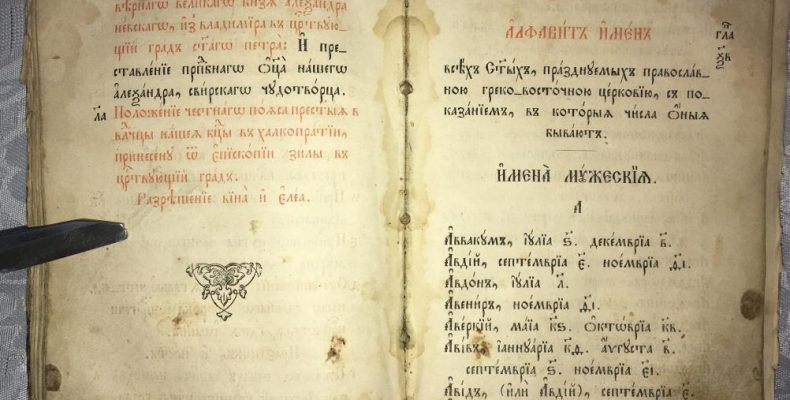 вѣ́рнагѡ вели́кагѡ кн҃зѧ а҆леѯа́ндра
не́вскагѡ, и҆з̾ влади́мїра въ црⷭ҇твꙋю-
щїй гра́дъ ст҃а́гѡ петра̀: И҆ пре-
ставле́нїе прпⷣбнагѡ ѻ҆ц҃а̀ на́шегѡ
а҆леѯа́ндра, сви́рскагѡ чꙋдотво́рца.
л҃а Положе́нїе честна́гѡ по́ѧса прест҃ы́ѧ
влⷣчцы на́шеѧ бцⷣы въ халкопра́тїи,
принесе́нꙋ ѿ є҆пїско́пїи зи́лы въ
црⷭ҇твꙋющїй гра́дъ.
Разрѣше́нїе вїна̀ и҆ є҆ле́а.
гла
А҆лфави́тъ и҆ме́нъ
всѣ́хъ ст҃ы́хъ, пра́зднꙋемыхъ правосла́в-
ною гре́ко-восто́чною це́рковїю, съ по-
каза́нїемъ, въ кото́рыѧ чи́сла ѻ҆́ныѧ
быва́ютъ.
И҆мена̀ мꙋ́жескїѧ.
А
А҆ввакꙋ́мъ, і҆ꙋ́лїа ѕ҃. деке́мврїа в҃.
А҆вді́й, септе́мврїа є҃. ное́мврїа ѳ҃і.
А҆вдо́нъ, і҆ꙋ́лїа л҃.
А҆вени́ръ, ное́мврїа ѳ҃і.
А҆ве́ркїй, ма́їа к҃ѕ. ѻ҆ктѡ́врїа к҃в.
А҆ві́въ, і҆аннꙋа́рїа к҃д. а҆́ѵгꙋста в҃.
септе́мврїа ѕ҃. ное́мврїа є҃і.
А҆ві́дъ, (и҆лѝ А҆вді́й), септе́мврїа є҃.